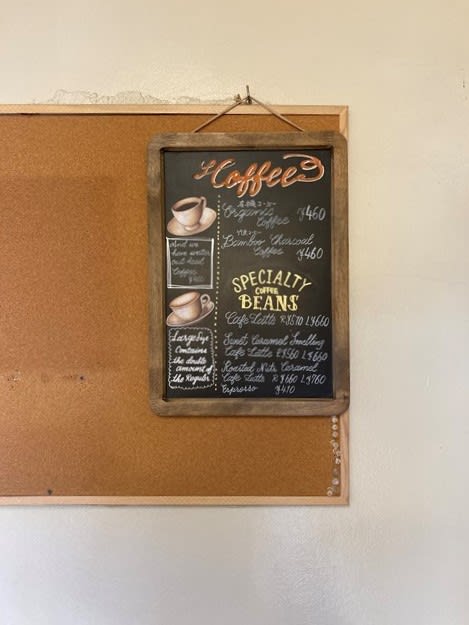 Coffee
有機コーヒー
Organic
Coffee ¥460
Bamboo Charcoal
Coffee ¥460
And we
have water
out iced
Coffee
SPECIALTY
COFFEE
BEANS
Cafe Latte R¥570 L¥660
Sweet Caramel Smelling
Cafe Latte R¥560 L¥660
Roasted Nuts Caramel
Cafe Latte R¥660 L¥760
Espresso ¥410
Large Size
Contains
the double
amount of
the Regular